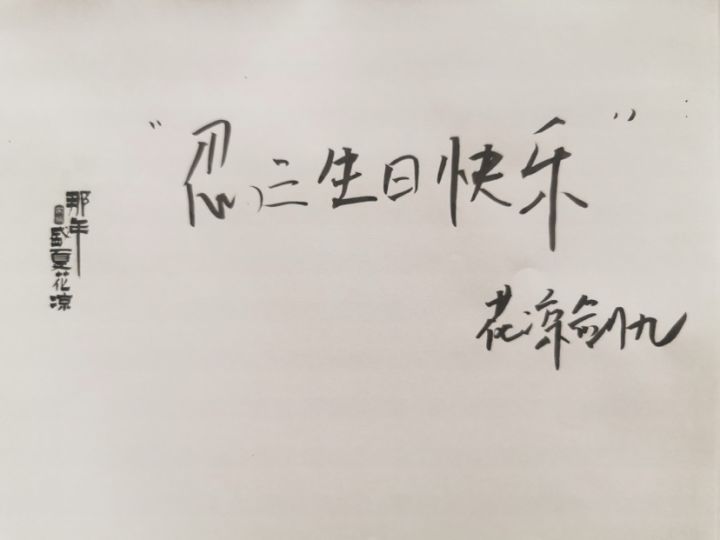 "忍三生日快乐"
花凉剑九
那年
盛夏花凉